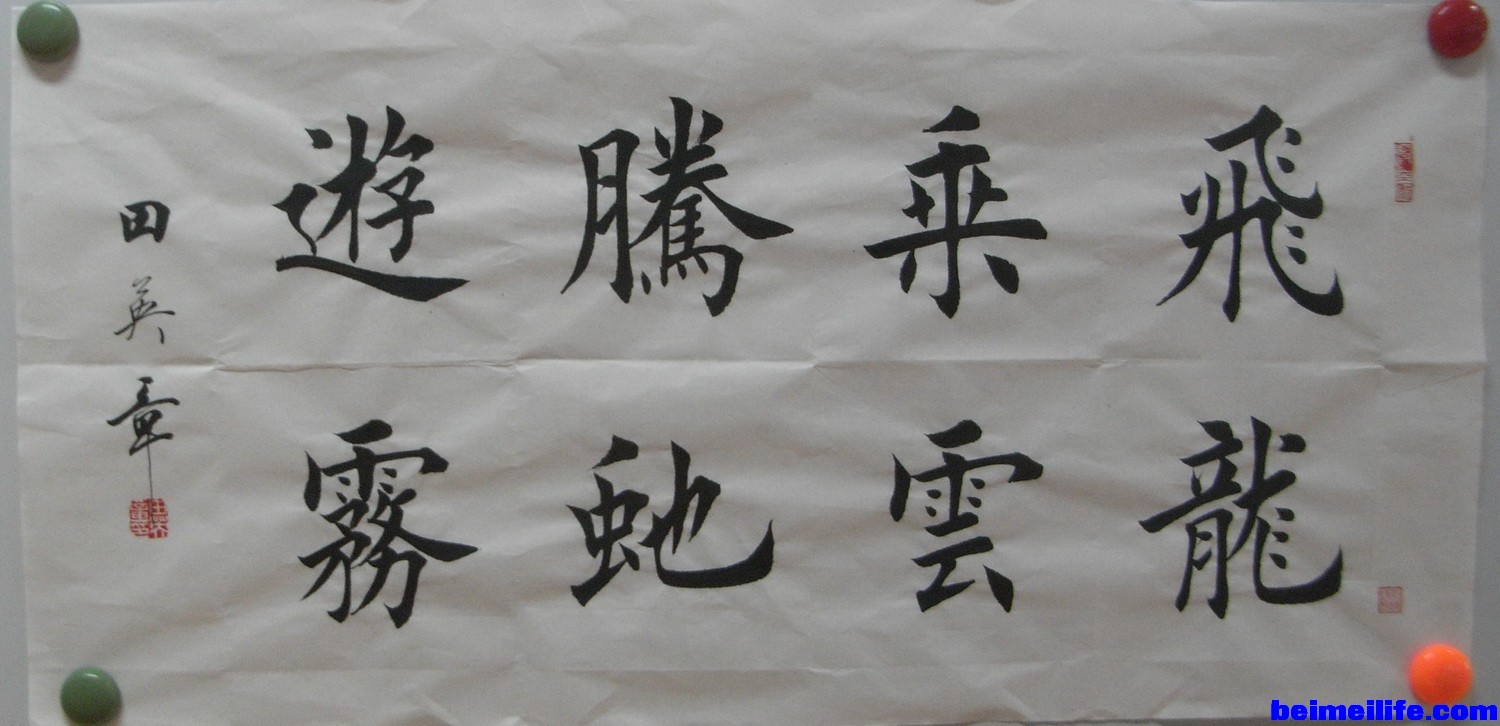 飛龍
乘雲
騰虵
遊霧
田英章
beimeilife.com